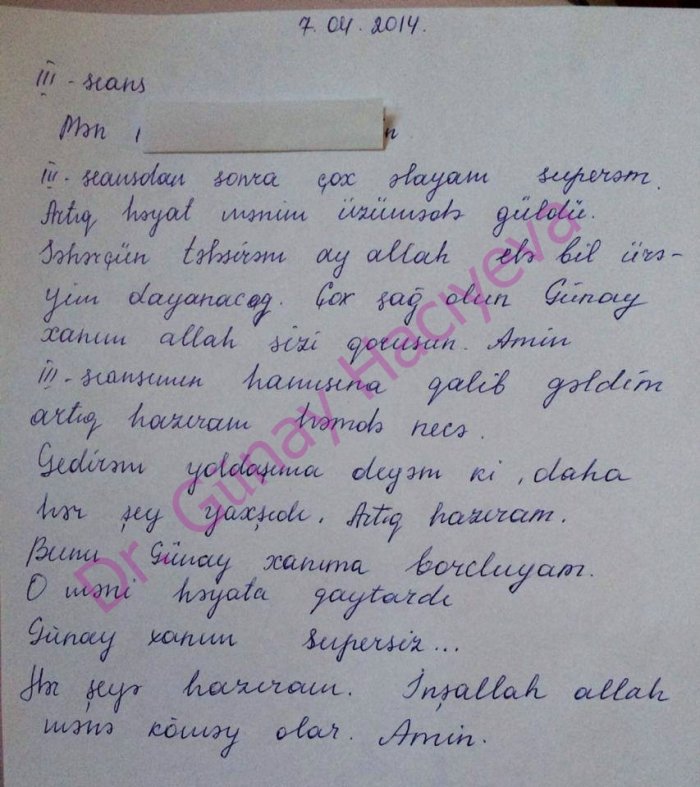 7.04.2014.
III - seans
Mən
III - seansdan sonra çox əlayam superəm.
Artıq həyat mənim üzümədə güldü.
Səhərçün tələsirəm ay allah elə bil ürə-
yim dayanacag. Çox şağ olun Günay
xanım allah sizi qorusun. Amin
III - seansımın hamısına qalib gəldim
artıq hazıram həmdə necə.
Gedirəm yoldaşıma deyəm ki, daha
hər şey yaxşıdı. Artıq hazıram.
Bunu Günay xanıma borcluyam.
O məni həyata qaytardı
Günay xanım supersiz...
Hər şeyə hazıram. İnşallah allah
mənə köməy olar. Amin.
Dr. Gunay Haciyeva